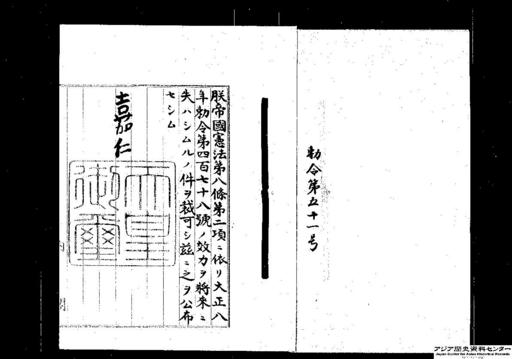 勅令第五十一号
朕帝國憲法第八條第二項ニ依リ大正八
年勅令第四百七十八號ノ效力ヲ將來ニ
失ハシムルノ件ヲ裁可シ茲ニ之ヲ公布
セシム
嘉仁
天皇
御璽
アジア歴史資料センター
Japan Center for Asian Historical Records